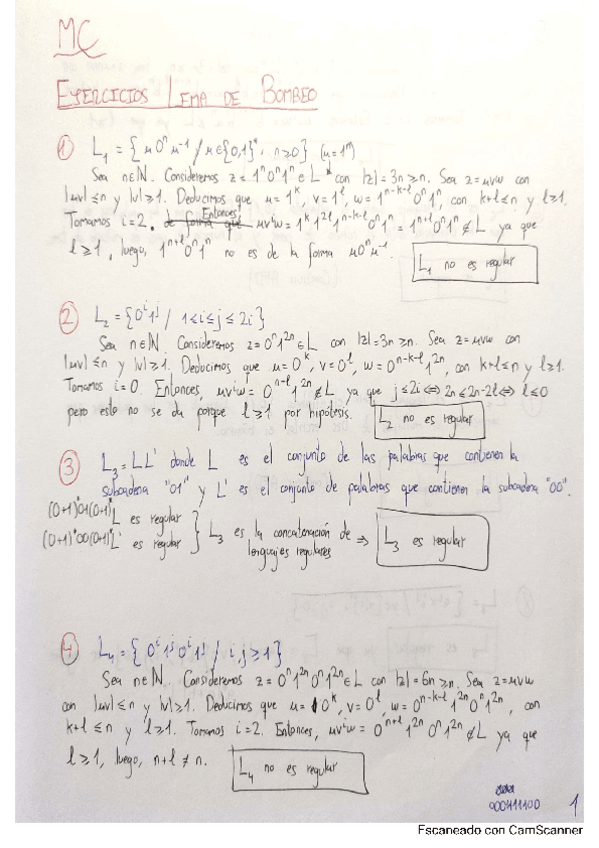 MC
EJERCICIOS LEMA DE BOMBEO
① L₁ = { u0ⁿu⁻¹ / u∈{0,1}*, n≥0} (u=1ⁿ)
Sea n∈ℕ. Consideremos z=1ⁿ0ⁿ1ⁿ∈L con |z|=3n≥n. Sea z=uvw con
|uv|≤n y |v|≥1. Deducimos que u=1ᵏ, v=1ˡ, w=1ⁿ⁻ᵏ⁻ˡ0ⁿ1ⁿ, con k+l≤n y l≥1.
Tomamos i=2. Entonces uvⁱw=1ᵏ1²ˡ1ⁿ⁻ᵏ⁻ˡ0ⁿ1ⁿ=1ⁿ⁺ˡ0ⁿ1ⁿ∉L ya que
l≥1, luego, 1ⁿ⁺ˡ0ⁿ1ⁿ no es de la forma u0ⁿu⁻¹. L₁ no es regular
② L₂ = {0ⁱ1ʲ / 1≤i≤j≤2i}
Sea n∈ℕ. Consideremos z=0ⁿ1²ⁿ∈L con |z|=3n≥n. Sea z=uvw con
|uv|≤n y |v|≥1. Deducimos que u=0ᵏ, v=0ˡ, w=0ⁿ⁻ᵏ⁻ˡ1²ⁿ, con k+l≤n y l≥1.
Tomamos i=0. Entonces, uvⁱw=0ⁿ⁻ˡ1²ⁿ∉L ya que j≤2i⇔2n≤2n-2l⇔l≤0
pero esto no se da porque l≥1 por hipótesis. L₂ no es regular
③ L₃=LL' donde L es el conjunto de las palabras que contienen la
subcadena "01" y L' es el conjunto de palabras que contienen la subcadena "00".
(0+1)*01(0+1)* L es regular
(0+1)*00(0+1)* L' es regular } L₃ es la concatenación de
lenguajes regulares ⇒ L₃ es regular
④ L₄={ 0ⁱ1ʲ0ⁱ1ʲ / i,j≥1}
Sea n∈ℕ. Consideremos z=0ⁿ1²ⁿ0ⁿ1²ⁿ∈L con |z|=6n≥n. Sea z=uvw
con |uv|≤n y |v|≥1. Deducimos que u=0ᵏ, v=0ˡ, w=0ⁿ⁻ᵏ⁻ˡ1²ⁿ0ⁿ1²ⁿ, con
k+l≤n y l≥1. Tomamos i=2. Entonces, uvⁱw=0ⁿ⁺ˡ1²ⁿ0ⁿ1²ⁿ∉L ya que
l≥1, luego, n+l≠n. L₄ no es regular
000111100
1
Escaneado con CamScanner